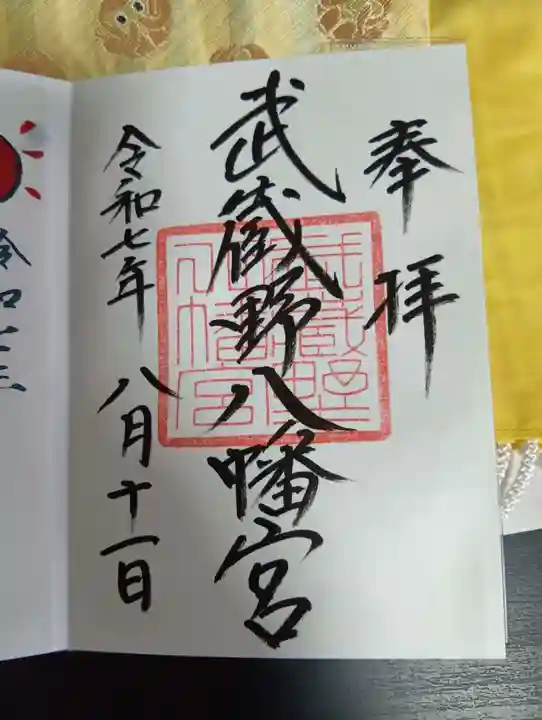 奉拝
武蔵野八幡宮
武蔵野八幡宮
令和七年 八月十一日
令和